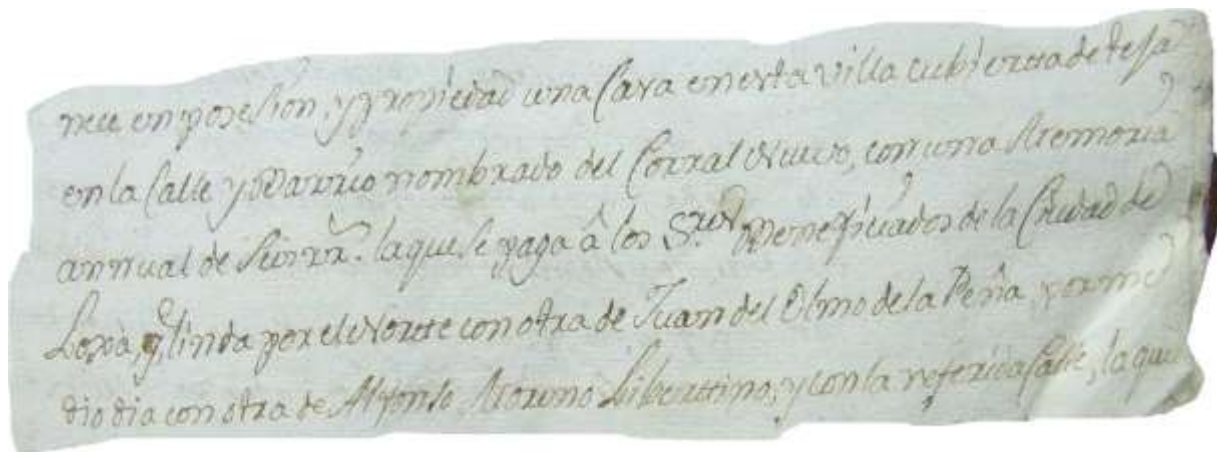 nece en posesion, y propiedad una Casa en esta villa cubierta de teja
en la Calle y Varrio nombrado del Corral Nuevo, con una Memoria
annual de Seis rr.s la que se paga â los S.res Beneficiados de la Ciudad de
Loxa, q.e linda por el Norte con otra de Juan del Olmo de la Peña, por me
dio dia con otra de Alfonso Moreno Libertino, y con la referida Calle, la que